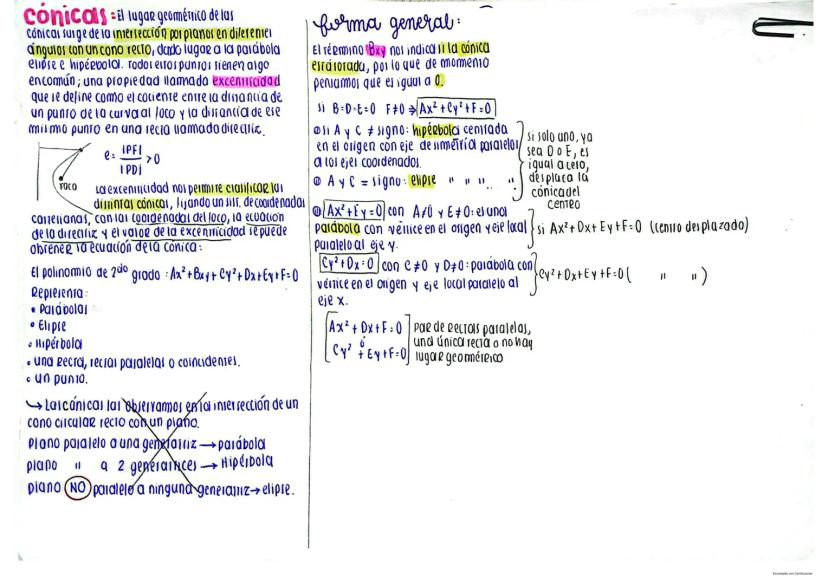 CÓNICAS = El lugar geométrico de las
cónicas surge de la intersección por planos en diferentes
ángulos con un cono recto, dando lugar a la parábola
elipse e hipérbola. Todos estos puntos tienen algo
en común; una propiedad llamada excentricidad
que se define como el cociente entre la distancia de
un punto de la curva al foco y la distancia de ese
mismo punto en una recta llamada directriz.
e = |PF| / |PD| > 0
FOCO
La excentricidad nos permite clasificar las
distintas cónicas, fijando un sist. de coordenadas
cartesianas, con las coordenadas del foco, la ecuación
de la directriz y el valor de la excentricidad se puede
obtener la ecuación de la cónica:
El polinomio de 2do grado: Ax² + Bxy + Cy² + Dx + Ey + F = 0
Representa:
• Parábolas
• Elipse
• Hipérbola
• una Recta, rectas paralelas o coincidentes.
• un punto.
↳ Las cónicas las observamos en la intersección de un
cono circular recto con un plano.
Plano paralelo a una generatriz → parábola
plano " a 2 generatrices → Hipérbola
plano NO paralelo a ninguna generatriz → elipse.
forma general:
El término Bxy nos indica si la cónica
está rotada, por lo que de momento
pensamos que es igual a 0.
si B=D=E=0 F≠0 ⇒ Ax² + Cy² + F = 0
① si A y C ≠ signo: hipérbola centrada
en el origen con eje de simetría paralelo
a los ejes coordenados.
② A y C = signo: elipse " " " .. "
si solo uno, ya
sea D o E, es
igual a cero,
desplaca la
cónica del
centro
① Ax² + Ey = 0 con A≠0 y E≠0: es una
parábola con vértice en el origen y eje focal
paralelo al eje y.
si Ax² + Dx + Ey + F = 0 (centro desplazado)
Cy² + Dx = 0 con C≠0 y D≠0: parábola con
vértice en el origen y eje focal paralelo al
eje x.
Cy² + Dx + Ey + F = 0 ( " " )
Ax² + Dx + F = 0
ó
Cy² + Ey + F = 0
Par de rectas paralelas,
una única recta o no hay
lugar geométrico
Escaneado con CamScanner